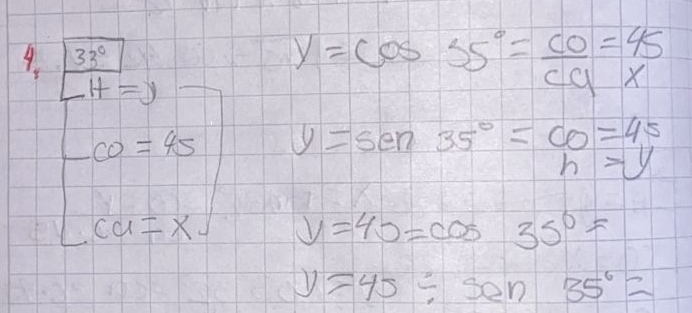 4. 33°
H = y
co = 45
ca = x
y = cos 35° = co/ca = 45/x
y = sen 35° = co/h = 45/y
y = 40 = cos 35° =
y = 45 ÷ sen 35° =